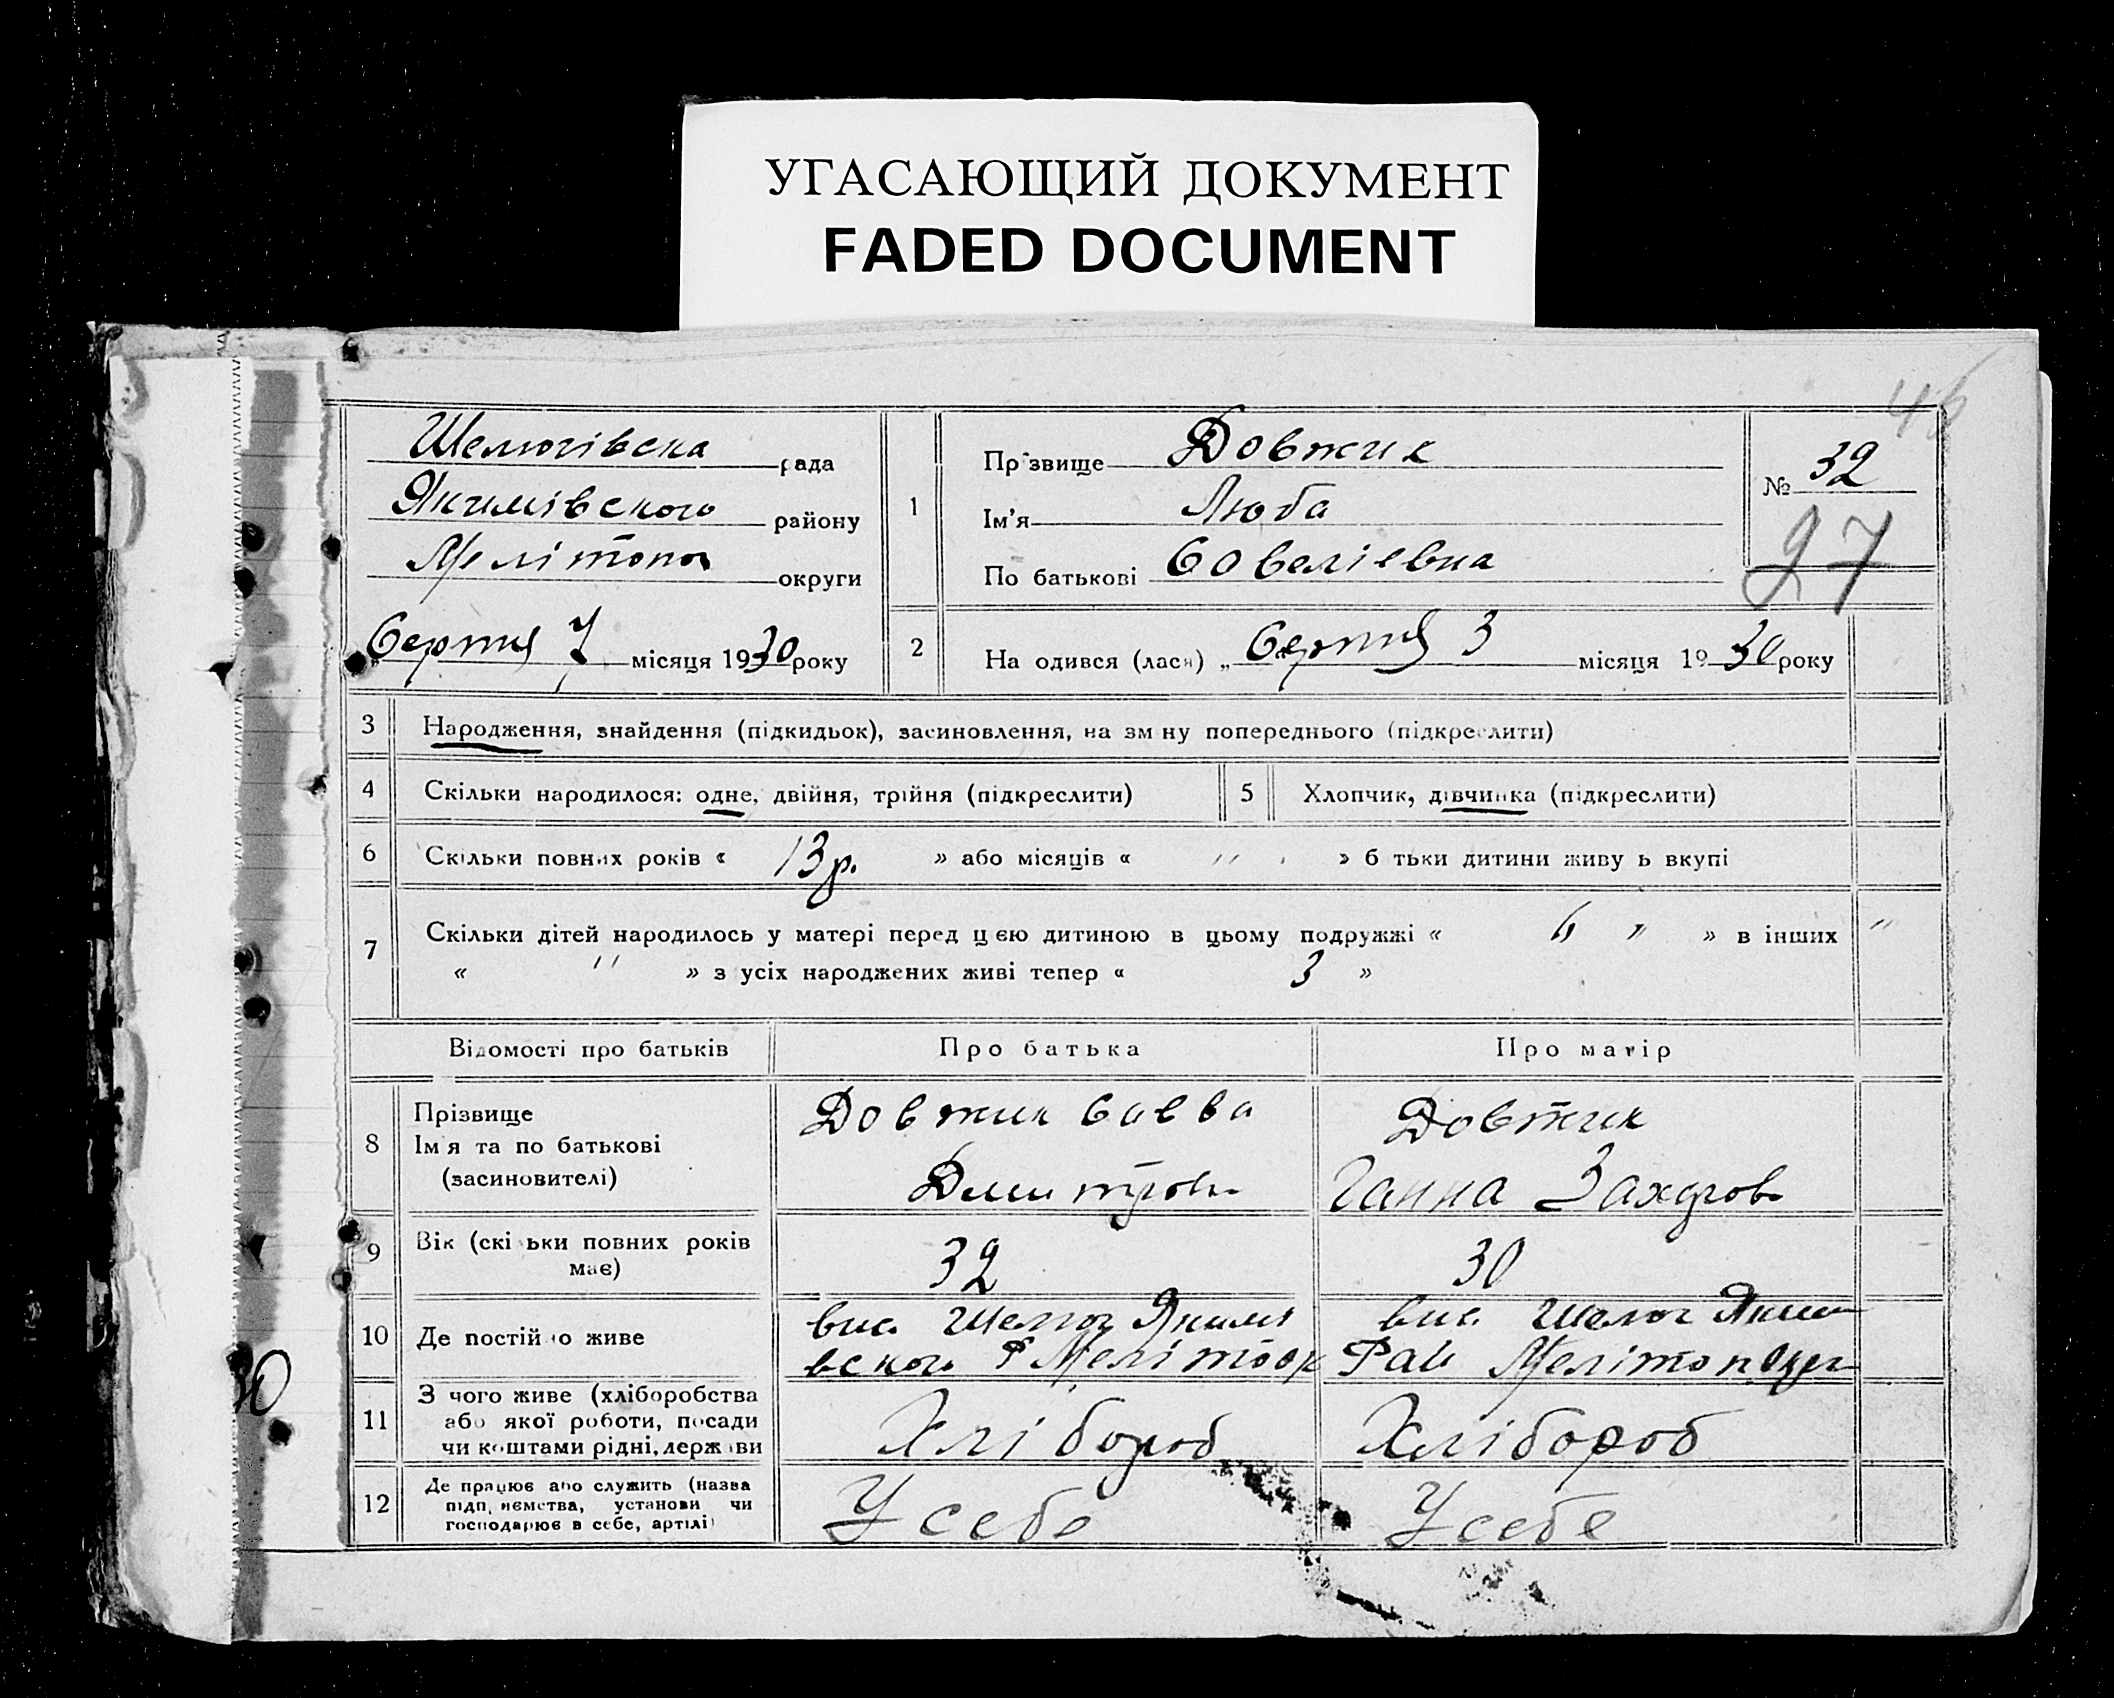 УГАСАЮЩИЙ ДОКУМЕНТ
FADED DOCUMENT
46
Шелюгівска рада
Якимівского району
Мелітопол округи
Серпня 7 місяця 1930 року
1
Прізвище Довжик
Ім'я Люба
По батькові Совеліевна
№ 32
27
2 На одився (лася) „ Серпня 3 місяця 1930 року
3 Народження, знайдення (підкидьок), засиновлення, на зм ну попереднього (підкреслити)
4 Скільки народилося: одне, двійня, трійня (підкреслити)
5 Хлопчик, дівчинка (підкреслити)
6 Скільки повних років « 13 р. » або місяців « " » б тьки дитини живу ь вкупі
7 Скільки дітей народилось у матері перед цею дитиною в цьому подружжі « 6 " » в інших "
« " » з усіх народжених живі тепер « 3 »
Відомості про батьків Про батька Про матір
8 Прізвище
Ім я та по батькові
(засиновителі)
Довжик Савва
Дмитров
Довжик
Ганна Захаров
9 Вік (скі ьки повних років
має)
32
30
10 Де постій о живе
вис. Шелюг Якимі
вского Р Меліт ок
вис. Шелюг Яким
Рай Мелітоп Окр
11 З чого живе (хліборобства
або якої роботи, посади
чи коштами рідні, держ ви
Хлібороб
Хлібороб
12 Де працює або служить (назва
підп, иємства, установи чи
господарює в себе, артілі)
У себе
У себе
30